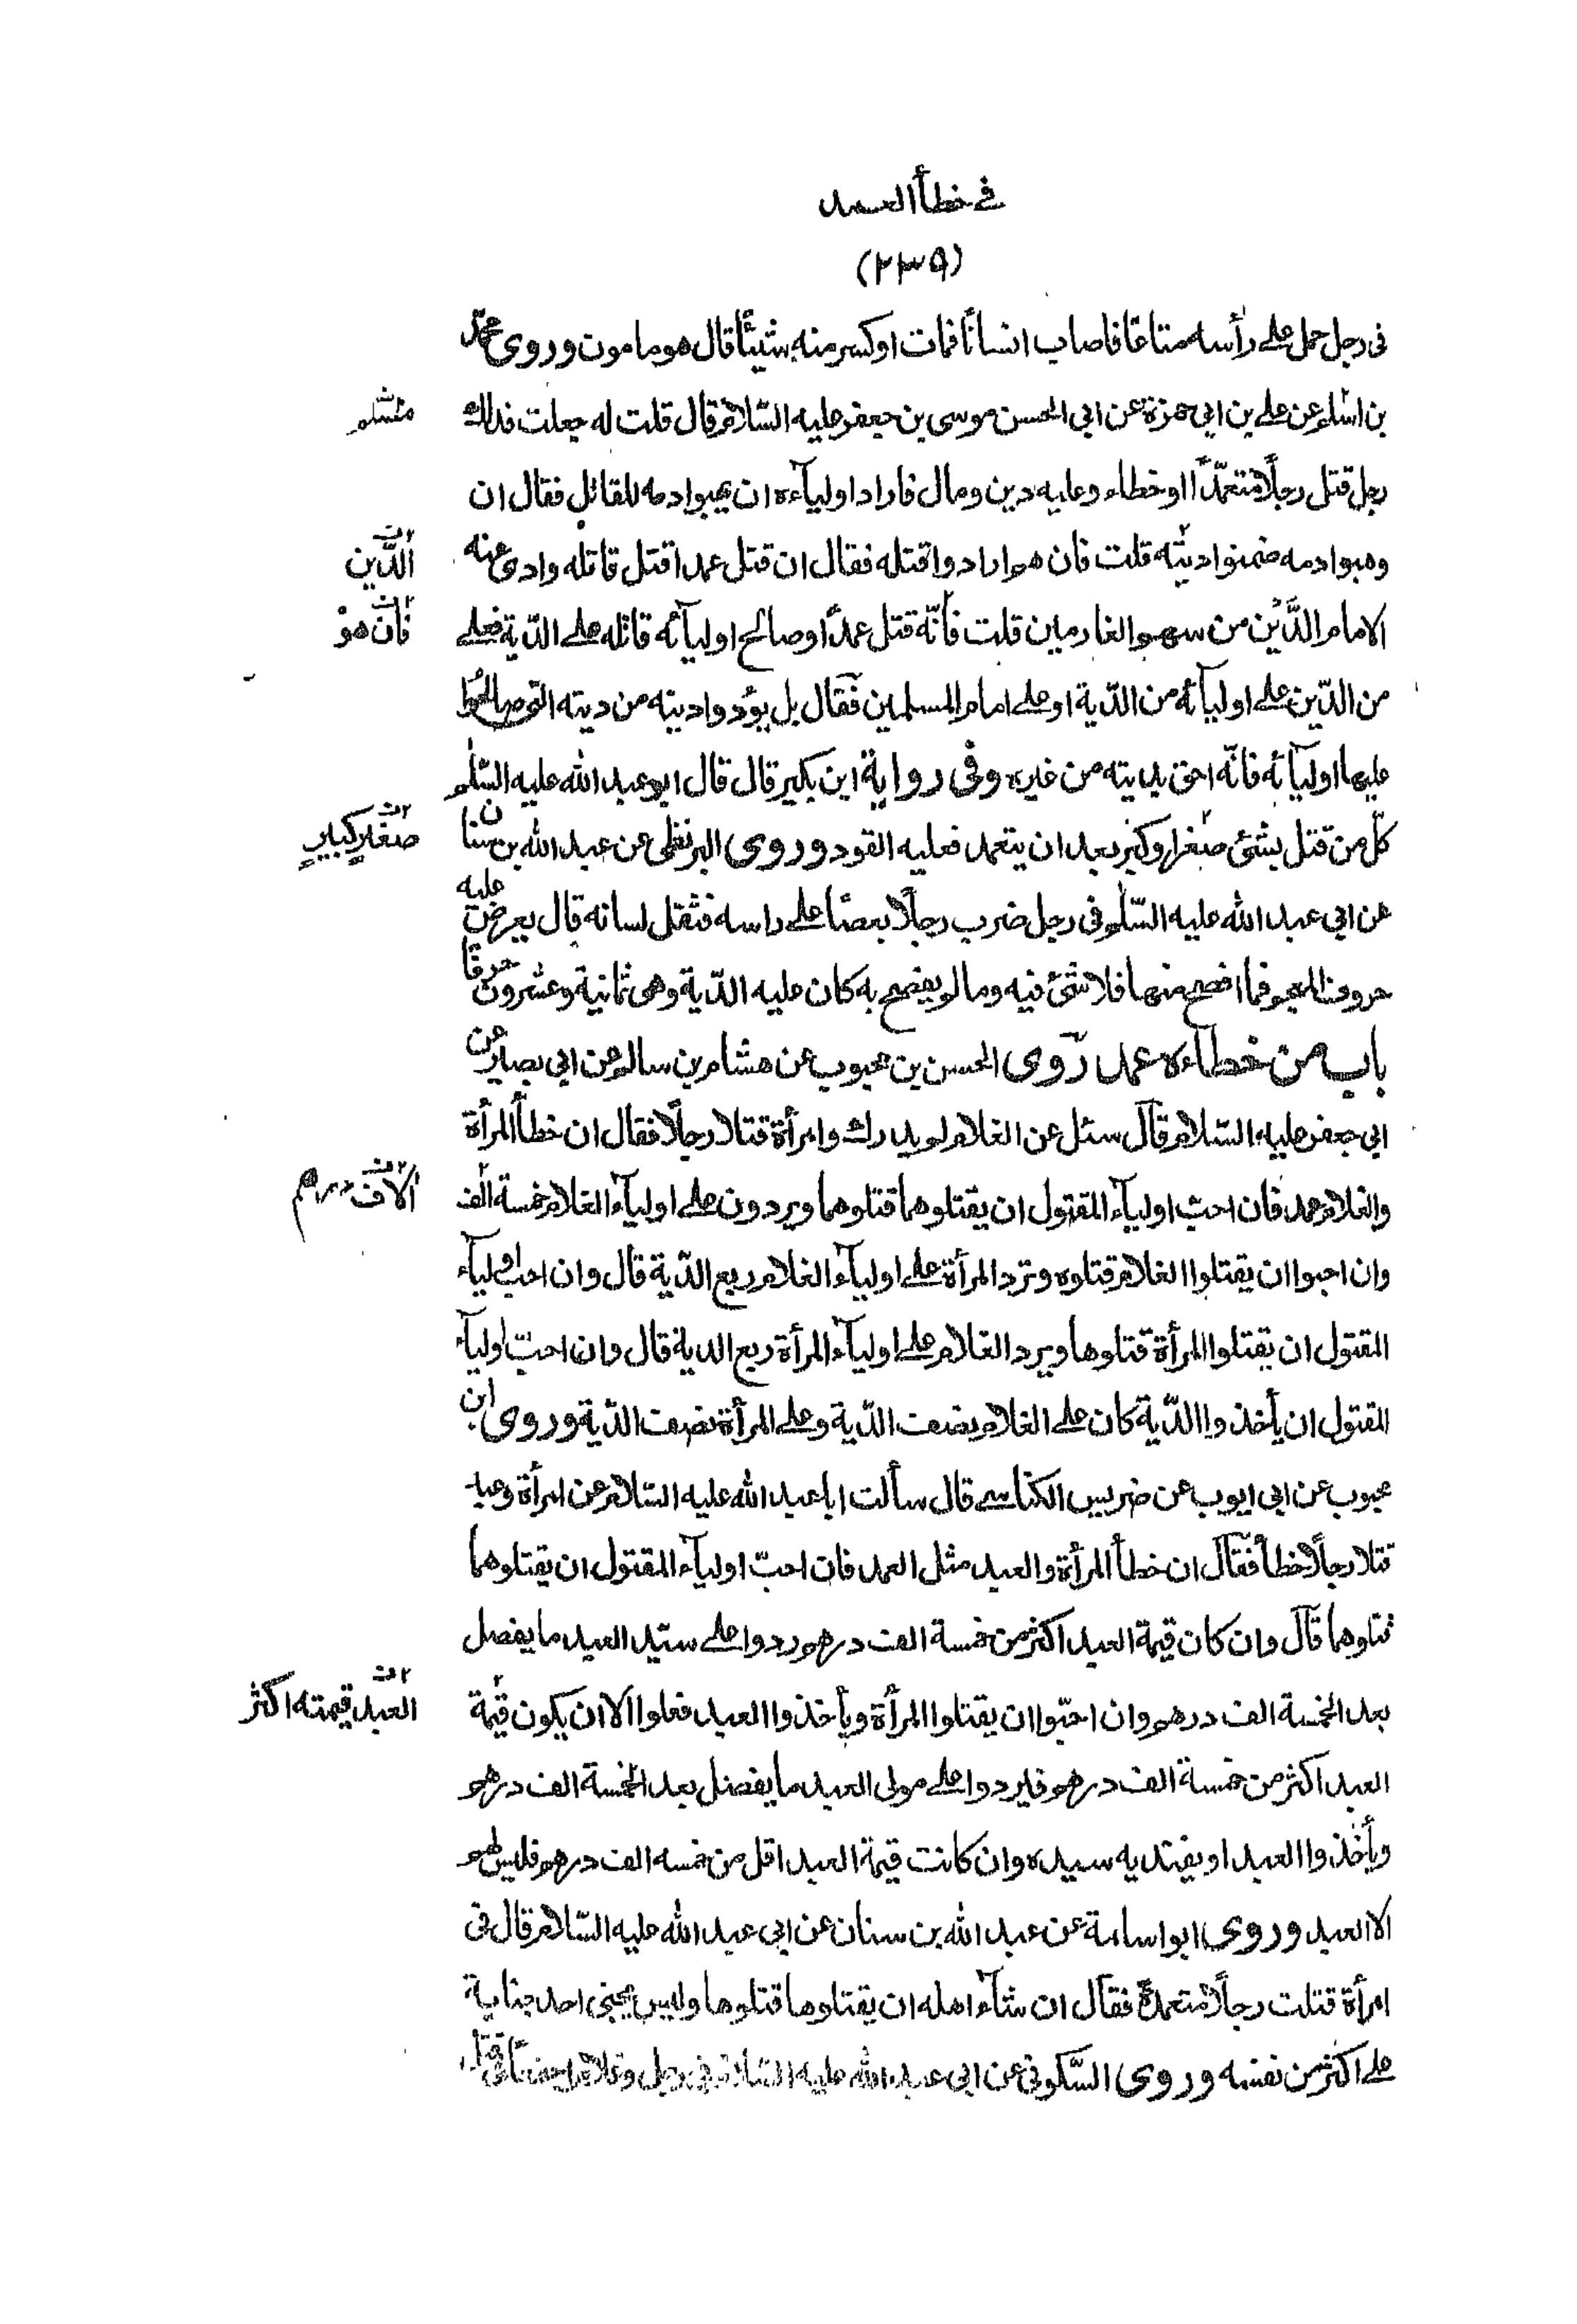 في خطأ العمد
(٢٣٥)
فى رجل حمل على رأسه متاعًا فاصاب انسانًا فمات او كسر منه شيئًا قال هو مامون وروى محمّد
بن اسلم عن على بن ابي حمزة عن ابي الحسن موسى بن جعفر عليه السّلام قال قلت له جعلت فداك
مسلم
رجل قتل رجلًا متعمّدًا او خطاء وعليه دين ومال فاراد اولياءه ان يهبوا دمه للقاتل فقال ان
وهبوا دمه ضمنوا ديته قلت فان هم ارادوا قتله فقال ان قتل عمدا قتل قاتله وادى عنه
الدّين
الامام الدَّين من سهم الغارمين قلت فانّه قتل عمدًا وصالح اوليآئه قاتله على الدّية فعلى
فان هو
من الدّين على اوليآئه من الدّية او على امام المسلمين فقال بل يؤدوا دينه من ديته التى صالحوا
عليها اوليآئه فانّه احق بديته من غيره وفى رواية ابن بكير قال قال ابو عبد الله عليه السّلم
كلّ من قتل بشئ صغر او كبر بعد ان يتعمد فعليه القود وروى البزنطى عن عبد الله بن سنان
صغيرٍ كبيرٍ
عن ابي عبد الله عليه السّلم فى رجل ضرب رجلًا بعصًا على راسه فثقل لسانه قال يعرض عليه
حروف المعجم فما افصح منها فلا شئ فيه وما لم يفصح به كان عليه الدّية وهى ثمانية وعشرون حرفًا
باب من خطاءه عمد روى الحسن بن محبوب عن هشام بن سالم عن ابي بصير عن
ابي جعفر عليه السّلام قال سئل عن الغلام لم يدرك وامرأة قتلا رجلًا فقال ان خطأ المرأة
والغلام عمد فان احبّ اوليآء المقتول ان يقتلوهما قتلوهما ويردون على اوليآء الغلام خمسة الف
الاف درهم
وان احبوا ان يقتلوا الغلام قتلوه وترد المرأة على اوليآء الغلام ربع الدّية قال وان احب اوليآء
المقتول ان يقتلوا المرأة قتلوها ويرد الغلام على اوليآء المرأة ربع الدية قال وان احبّ اوليآء
المقتول ان يأخذوا الدّية كان على الغلام نصف الدّية وعلى المرأة نصف الدّية وروى ابن
محبوب عن ابى ايوب عن ضريس الكناسي قال سألت ابا عبد الله عليه السّلام عن امرأة وعبد
قتلا رجلًا خطأ فقال ان خطأ المرأة والعبد مثل العمد فان احبّ اوليآء المقتول ان يقتلوهما
قتلوهما قال وان كان قيمة العبد اكثر من خمسة الف درهم ردوا على سيّد العبد ما يفضل
بعد الخمسة الف درهم وان احبّوا ان يقتلوا المرأة ويأخذوا العبد فعلوا الا ان يكون قيمة
العبد قيمته اكثر
العبد اكثر من خمسة الف درهم فليردوا على مولى العبد ما يفضل بعد الخمسة الف درهم
ويأخذوا العبد او يفتديه سيده وان كانت قيمة العبد اقل من خمسه الف درهم فليس لهم
الا العبد وروى ابو اسامة عن عبد الله بن سنان عن ابى عبد الله عليه السّلام قال فى
امرأة قتلت رجلًا متعمدةً فقال ان شآء اهله ان يقتلوها قتلوها وليس يجنى احد جناية
على اكثر من نفسه وروى السّكونى عن ابى عبد الله عليه السّلام فى رجل وغلام